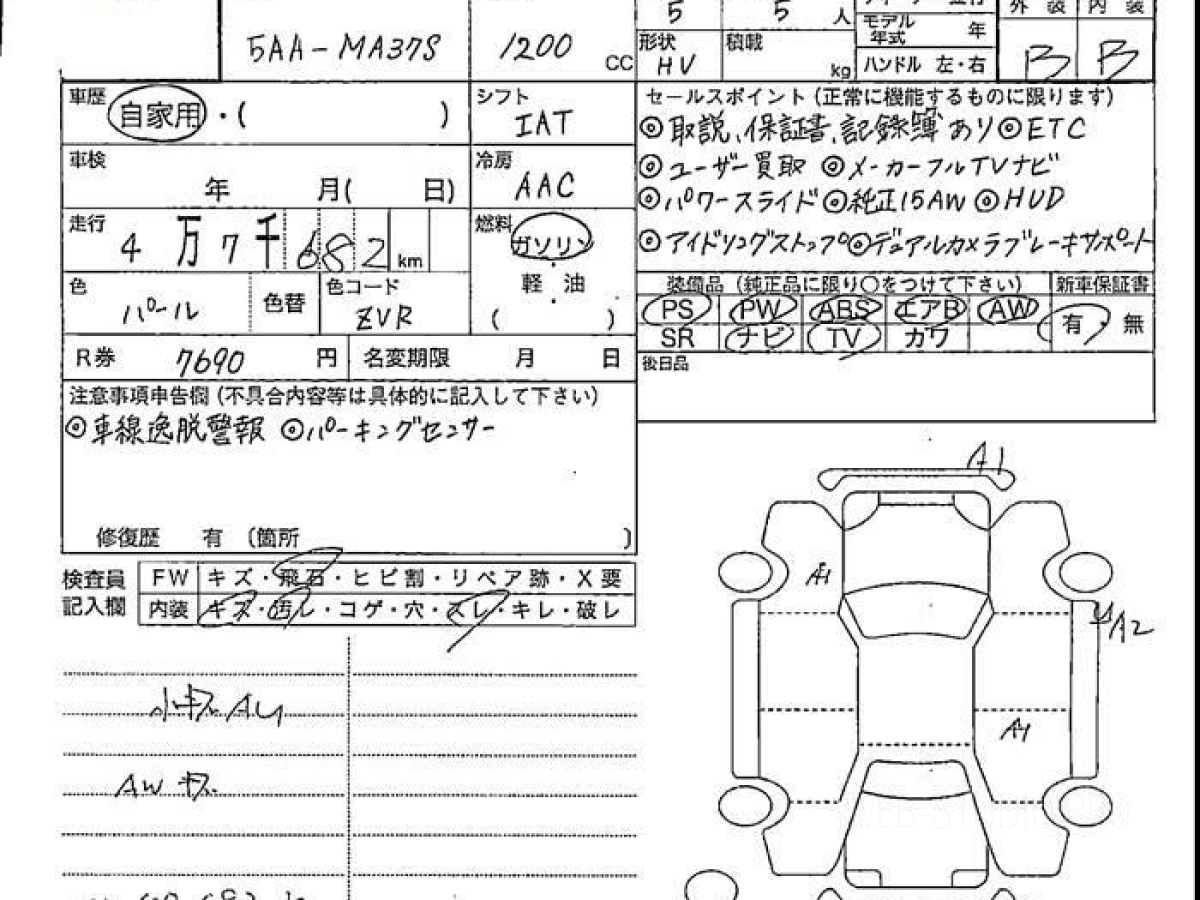 5 5 人
5AA-MA37S 1200 CC
形状 HV 積載 kg
モデル年式 年
ハンドル 左・右
外装 内装
B B
車歴 自家用・( )
シフト IAT
車検 年 月( 日)
冷房 AAC
走行 4万7千682 km
燃料 ガソリン・軽油・( )
色 パール 色替 色コード ZVR
R券 7690 円 名変期限 月 日
セールスポイント(正常に機能するものに限ります)
◎取説、保証書、記録簿あり◎ETC
◎ユーザー買取 ◎メーカーフルTVナビ
◎パワースライド◎純正15AW ◎HUD
◎アイドリングストップ◎デュアルカメラブレーキサポート
装備品(純正品に限り○をつけて下さい) 新車保証書
PS PW ABS エアB AW 有・無
SR ナビ TV カワ
後日品
注意事項申告欄(不具合内容等は具体的に記入して下さい)
◎車線逸脱警報 ◎パーキングセンサー
修復歴 有 〔箇所 〕
検査員記入欄
FW キズ・飛石・ヒビ割・リペア跡・X要
内装 キズ・汚レ・コゲ・穴・スレ・キレ・破レ
小キズAU
AWキズ
A1
A1
A2
A1